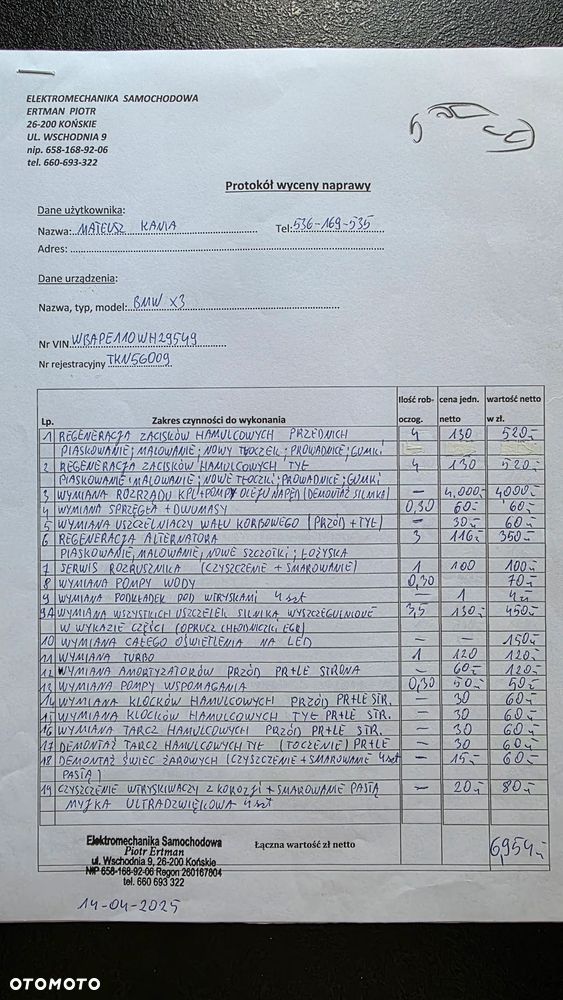 ELEKTROMECHANIKA SAMOCHODOWA
ERTMAN PIOTR
26-200 KOŃSKIE
UL. WSCHODNIA 9
nip. 658-168-92-06
tel. 660-693-322
Protokół wyceny naprawy
Dane użytkownika:
Nazwa: MATEUSZ KANIA Tel: 536-169-535
Adres:
Dane urządzenia:
Nazwa, typ, model: BMW X3
Nr VIN WBAPE110WH29549
Nr rejestracyjny TKN56009
Lp. Zakres czynności do wykonania Ilość rob-oczog. cena jedn. netto wartość netto w zł.
1 REGENERACJA ZACISKÓW HAMULCOWYCH PRZEDNICH 4 130 520,-
PIASKOWANIE; MALOWANIE; NOWY TŁOCZEK; PROWADNICE; GUMKI
2 REGENERACJA ZACISKÓW HAMULCOWYCH TYŁ 4 130 520,-
PIASKOWANIE; MALOWANIE; NOWE TŁOCZKI; PROWADNICE; GUMKI
3 WYMIANA ROZRZĄDU KPL + POMPY OLEJU NAPĘD (DEMONTAŻ SILNIKA) - 4,000,- 4000,-
4 WYMIANA SPRZĘGŁA + DWUMASY 0,30 60,- 60,-
5 WYMIANA USZCZELNIACZY WAŁU KORBOWEGO (PRZÓD + TYŁ) - 30,- 60,-
6 REGENERACJA ALTERNATORA 3 116,- 350,-
PIASKOWANIE, MALOWANIE, NOWE SZCZOTKI; ŁOŻYSKA
7 SERWIS ROZRUSZNIKA (CZYSZCZENIE + SMAROWANIE) 1 100 100,-
8 WYMIANA POMPY WODY 0,30 70,-
9 WYMIANA PODKŁADEK POD WTRYSKAMI 4 szt - 1 4 zł
9A WYMIANA WSZYSTKICH USZCZELEK SILNIKA WYSZCZEGULNIONE 3,5 130,- 450,-
W WYKAZIE CZĘŚCI (OPRUCZ CHŁODNICZKI EGR)
10 WYMIANA CAŁEGO OŚWIETLENIA NA LED - - 150,-
11 WYMIANA TURBO 1 120 120,-
12 WYMIANA AMORTYZATORÓW PRZÓD PR+LE STRONA - 60,- 120,-
13 WYMIANA POMPY WSPOMAGANIA 0,30 50,- 50,-
14 WYMIANA KLOCKÓW HAMULCOWYCH PRZÓD PR+LE STR. - 30 60,-
15 WYMIANA KLOCKÓW HAMULCOWYCH TYŁ PR+LE STR. - 30 60,-
16 WYMIANA TARCZ HAMULCOWYCH PRZÓD PR+LE STR. - 30 60,-
17 DEMONTAŻ TARCZ HAMULCOWYCH TYŁ (TOCZENIE) PR+LE - 30 60,-
18 DEMONTAŻ ŚWIEC ŻAROWYCH (CZYSZCZENIE + SMAROWANIE 4szt - 15,- 60,-
PASTĄ)
19 CZYSZCZENIE WTRYSKIWACZY Z KOROZJI + SMAROWANIE PASTĄ - 20,- 80,-
MYJKA ULTRADZWIĘKOWA 4 szt
Łączna wartość zł netto 6,954,-
Elektromechanika Samochodowa
Piotr Ertman
ul. Wschodnia 9, 26-200 Końskie
NIP 658-168-92-06 Regon 260167804
tel. 660 693 322
14-04-2025
OTOMOTO